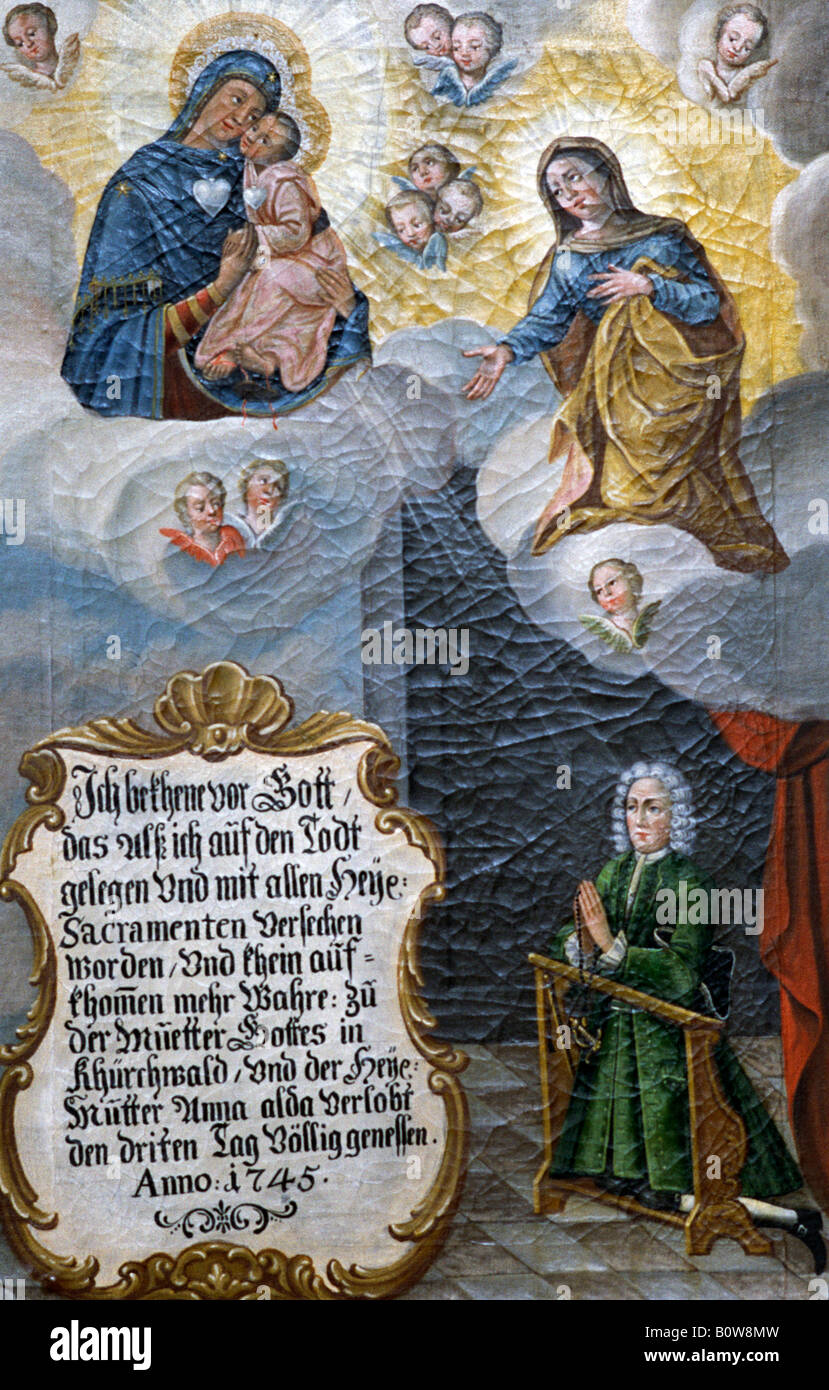 Ich bekhene vor Gott /
das Alß ich auf den Todt
gelegen Und mit allen Heÿe:
Sacramenten Versechen
worden / Und khein auf=
khom̄en mehr Wahre: zu
der Mũetter Gottes in
Khürchwald / Und der Heÿe:
Mũtter Anna alda Verlobt
den driten Tag Völlig genessen.
Anno: 1745.
alamy
B0W8MW
www.alamy.com